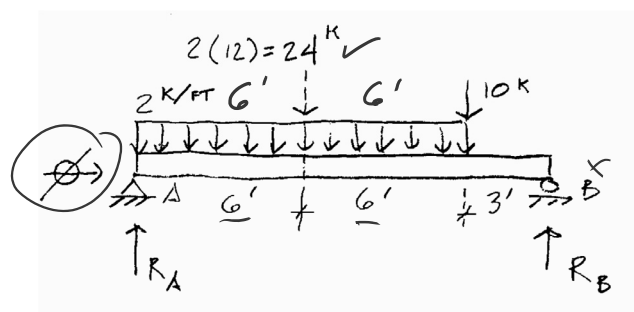 2(12)=24ᴷ ✓
2 K/FT 6' 6' 10ᴷ
A 6' 6' 3' B
R_A R_B